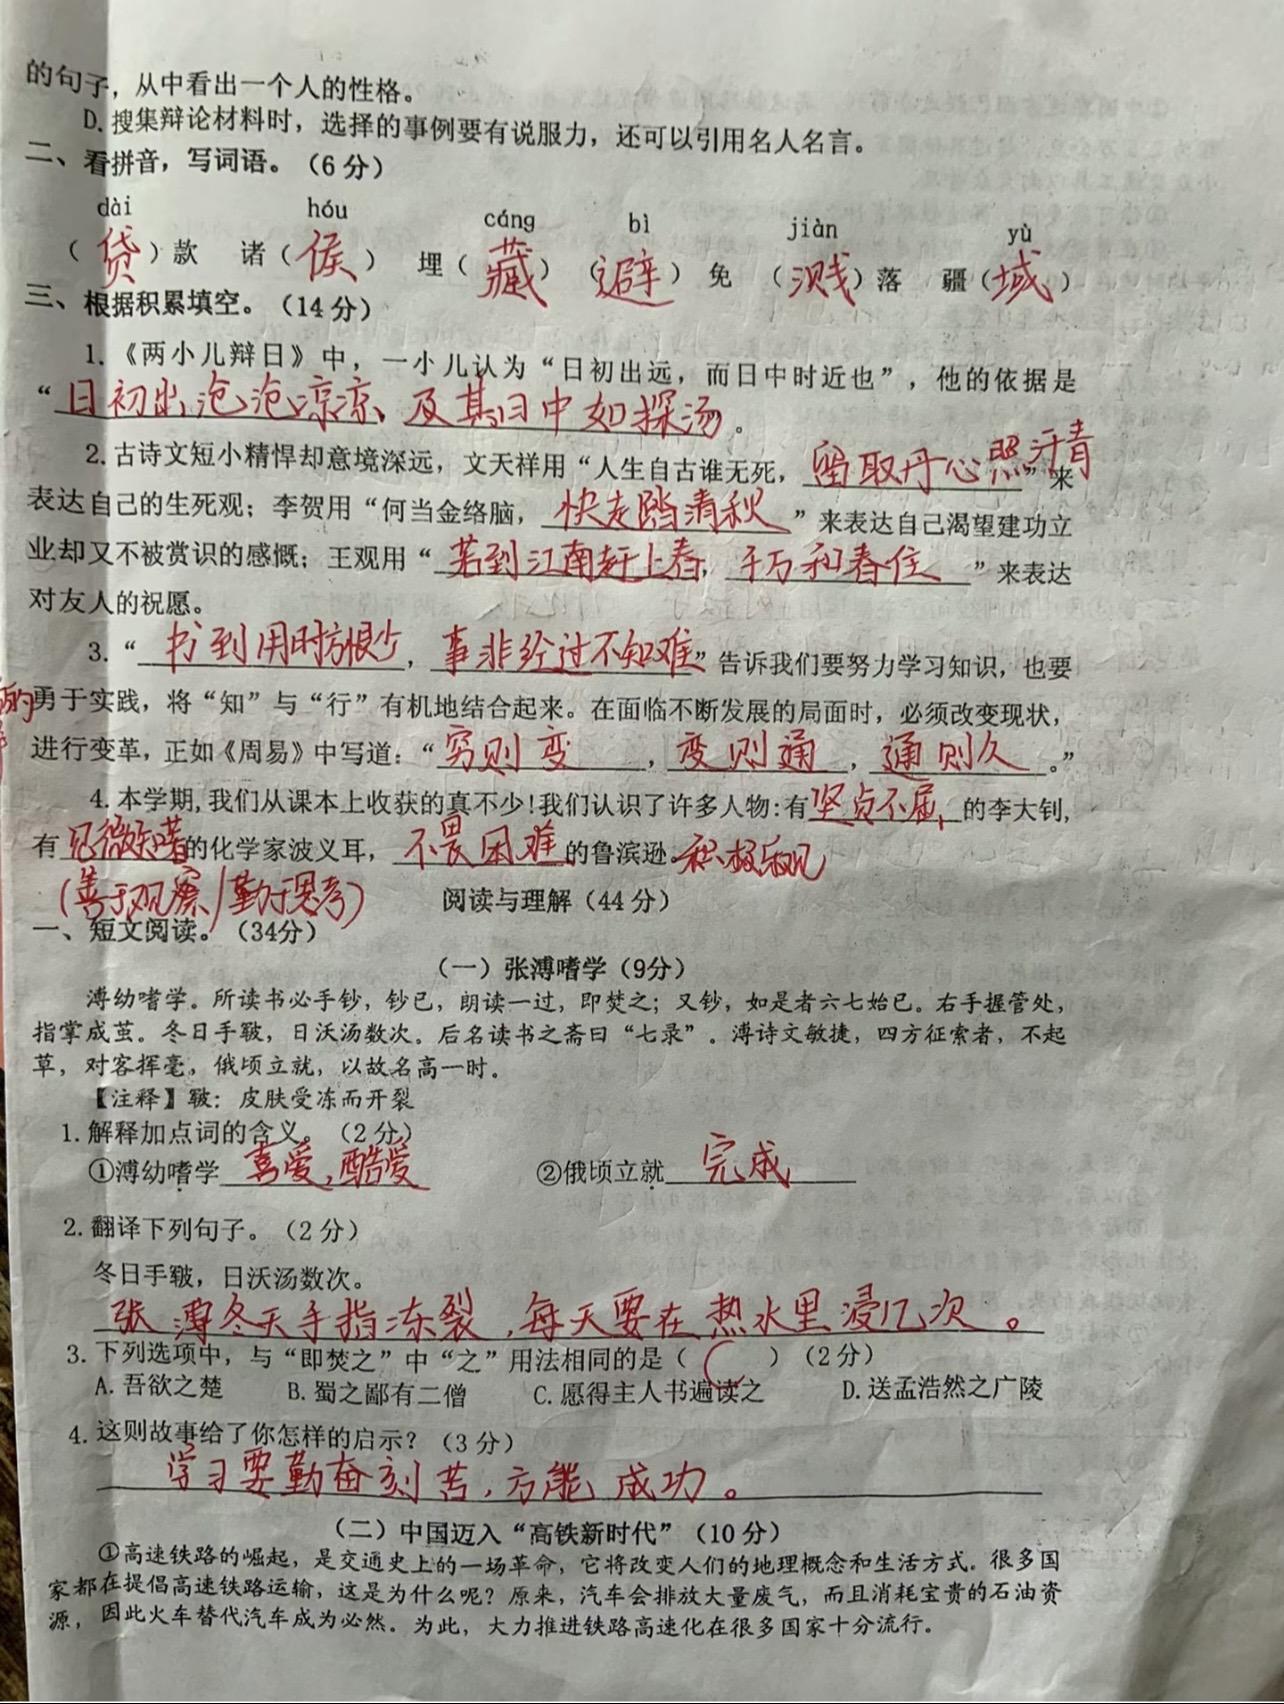 的句子，从中看出一个人的性格。
D.搜集辩论材料时，选择的事例要有说服力，还可以引用名人名言。
二、看拼音，写词语。（6分）
dài hóu cáng bì jiàn yù
（贷）款 诸（侯） 埋（藏） （避）免 （溅）落 疆（域）
三、根据积累填空。（14分）
1.《两小儿辩日》中，一小儿认为“日初出远，而日中时近也”，他的依据是
“日初出沧沧凉凉，及其日中如探汤。
2.古诗文短小精悍却意境深远，文天祥用“人生自古谁无死，留取丹心照汗青”来
表达自己的生死观；李贺用“何当金络脑，快走踏清秋”来表达自己渴望建功立
业却又不被赏识的感慨；王观用“若到江南赶上春，千万和春住”来表达
对友人的祝愿。
3.“书到用时方恨少，事非经过不知难”告诉我们要努力学习知识，也要
勇于实践，将“知”与“行”有机地结合起来。在面临不断发展的局面时，必须改变现状，
进行变革，正如《周易》中写道：“穷则变，变则通，通则久。”
4.本学期,我们从课本上收获的真不少!我们认识了许多人物:有坚贞不屈的李大钊,
有见微知著的化学家波义耳，不畏困难的鲁滨逊。积极乐观
(善于观察/勤于思考)
阅读与理解（44分）
一、短文阅读。（34分）
（一）张溥嗜学（9分）
溥幼嗜学。所读书必手钞，钞已，朗读一过，即焚之；又钞，如是者六七始已。右手握管处，
指掌成茧。冬日手皲，日沃汤数次。后名读书之斋曰“七录”。溥诗文敏捷，四方征索者，不起
草，对客挥毫，俄顷立就，以故名高一时。
【注释】皲：皮肤受冻而开裂
1.解释加点词的含义。（2分）
①溥幼嗜学 喜爱,酷爱 ②俄顷立就 完成
2.翻译下列句子。（2分）
冬日手皲，日沃汤数次。
张溥冬天手指冻裂，每天要在热水里浸几次。
3.下列选项中，与“即焚之”中“之”用法相同的是（C）（2分）
A.吾欲之楚 B.蜀之鄙有二僧 C.愿得主人书遍读之 D.送孟浩然之广陵
4.这则故事给了你怎样的启示？（3分）
学习要勤奋刻苦，方能成功。
（二）中国迈入“高铁新时代”（10分）
①高速铁路的崛起，是交通史上的一场革命，它将改变人们的地理概念和生活方式。很多国
家都在提倡高速铁路运输，这是为什么呢？原来，汽车会排放大量废气，而且消耗宝贵的石油资
源，因此火车替代汽车成为必然。为此，大力推进铁路高速化在很多国家十分流行。